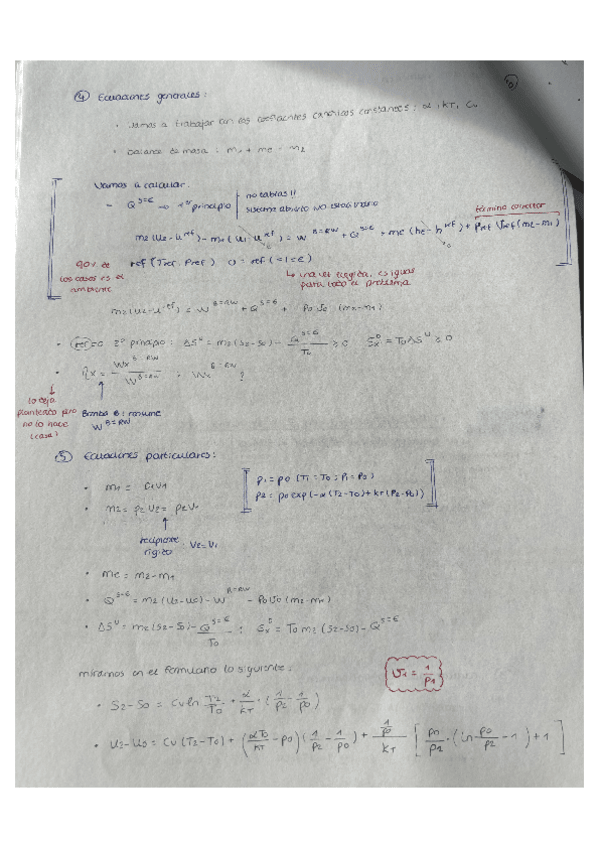 ④ Ecuaciones generales:
• Vamos a trabajar con los coeficientes canónicos constantes: α, kT, Cv
• balance de masa: m1 + me = m2
Vamos a calcular:
no tablas!!
- Q^S=E → 1er principio
sistema abierto NO estacionario
término corrector
m2(u2-u^ref) - m1(u1-u^ref) = W^B=RW + Q^S=E + me(he-h^ref) + Pref Vref(m2-m1)
90% de los casos es el ambiente
ref (Tref, Pref) 0 = ref (=1=e)
↳ una vez elegida, es igual para todo el problema
m2(u2-u^ref) = W^B=RW + Q^S=E + P0V0 (m2-m1)
• ref=0 2º principio: ΔS^U = m2(s2-s0) - Q^S=E/T0 ≥ 0 S = T0ΔS^U ≥ 0
• ηx = Wx^B=RW / W^B=RW → Wx^B=RW ?
lo deja planteado pero no lo hace (casa)
Bomba B: consume W^B=RW
⑤ Ecuaciones particulares:
• m1 = ρ1V1
ρ1 = ρ0 (T1=T0; P1=P0)
• m2 = ρ2V2 = ρ2V1
ρ2 = ρ0 exp(-α(T2-T0)+kT(P2-P0))
recipiente rígido: V2=V1
• me = m2-m1
• Q^S=E = m2(u2-u0) - W^B=RW - P0V0(m2-m1)
• ΔS^U = m2(s2-s0) - Q^S=E/T0 ; S = T0 m2(s2-s0) - Q^S=E
miramos en el formulario lo siguiente:
v1 = 1/ρ1
• S2-S0 = Cv ln T2/T0 + α/kT · (1/ρ2 - 1/ρ0)
• u2-u0 = Cv(T2-T0) + (αT0/kT - p0)(1/ρ2 - 1/ρ0) + 1/ρ0/kT [ρ0/ρ2 · (ln ρ0/ρ2 - 1) + 1]